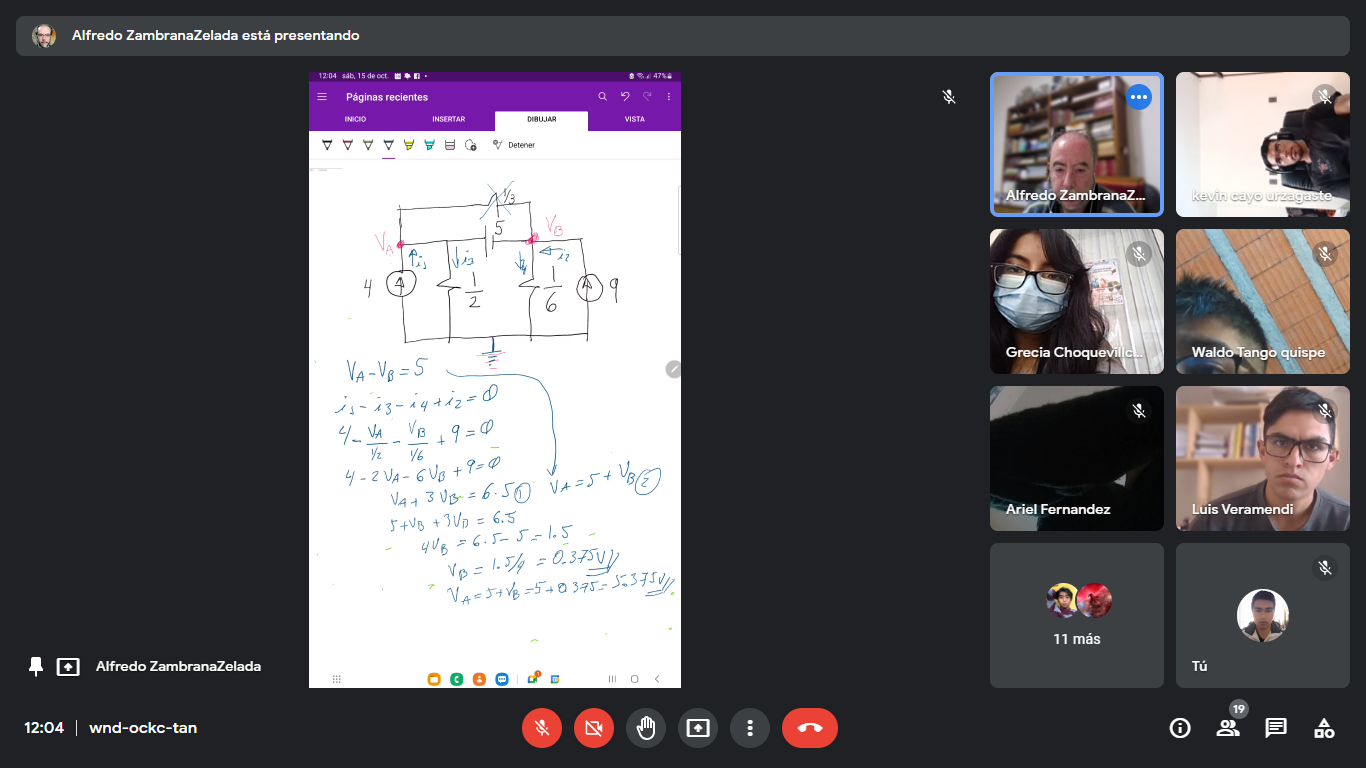 Alfredo ZambranaZelada está presentando
12:04 sáb, 15 de oct.
47%
Páginas recientes
INICIO INSERTAR DIBUJAR VISTA
Detener
1/3
5
V_A
V_B
i_3
i_2
4
1/2
1/6
9
V_A - V_B = 5
- i_3 - i_4 + i_2 = 0
4 - V_A/1/2 - V_B/1/6 + 9 = 0
4 - 2V_A - 6V_B + 9 = 0
V_A + 3V_B = 6.5 ①
V_A = 5 + V_B ②
5 + V_B + 3V_B = 6.5
4V_B = 6.5 - 5 = 1.5
V_B = 1.5/4 = 0.375V
V_A = 5 + V_B = 5 + 0.375 = 5.375V
Alfredo ZambranaZ...
kevin cayo urzagaste
Grecia Choquevillc...
Waldo Tango quispe
Ariel Fernandez
Luis Veramendi
11 más
Tú
Alfredo ZambranaZelada
12:04 | wnd-ockc-tan
19